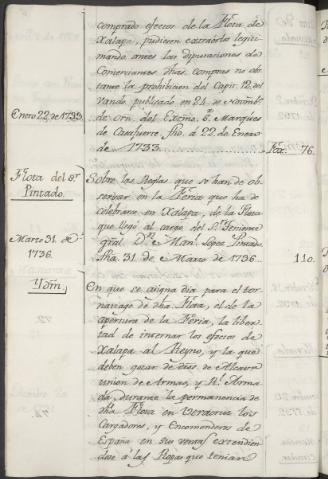 comprado efectos de la Flota de
Xalapa, pudiesen extraerlos legiti-
mando antes las Diputaciones de
Comerciantes dhas. compras no obs-
tante la prohibicion del Capit. 12. del
Vando publicado en 24. de Noviemb.
de orn. del Excmo. S. Marques
de Casafuerte, fho. à 22. de Enero
Enero 22. de 1733.
de 1733.
76.
Flota del Sr.
Pintado.
Sobre las Reglas que se han de ob-
servar en la Feria que ha de
celebrarse en Xalapa, de la Flota
que llegó al cargo del Sr. Teniente
gral. Dn. Man. Lopez Pintado
Marzo 31. de
1736.
fha. 31. de Marzo de 1736.
110.
Ydm.
En que se asigna dia para el tor-
naviage de dha. Flota, el de la
apertura de la Feria, la liber-
tad de internar los efectos de
Xalapa al Reyno, y la que
deben gozar de dros. de Alcavala
union de Armas, y Rl. Arma-
da, durante la permanencia de
dha. Flota en Veracruz los
Cargadores, y Encomenderos de
España en sus ventas extendien-
dose à las Plazas que tenian